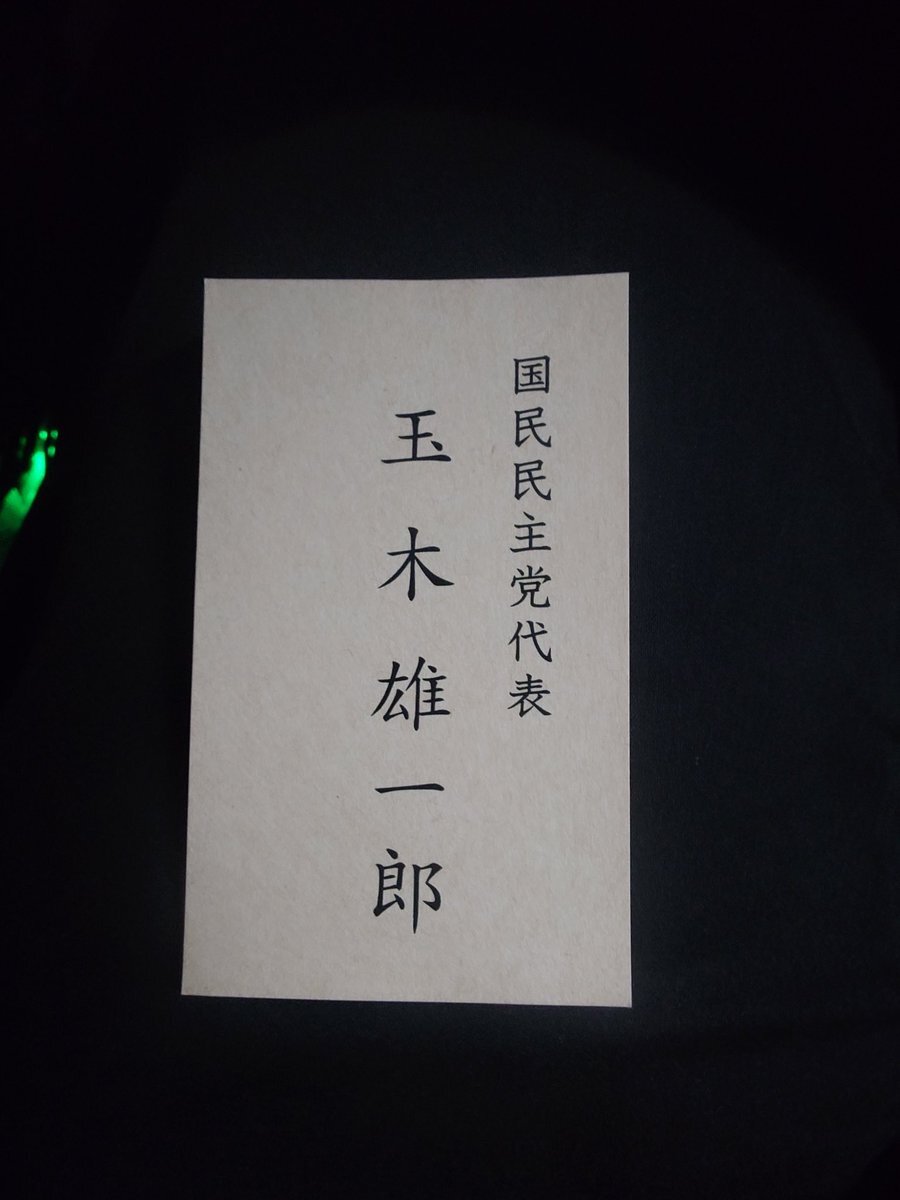 国民民主党代表
玉木雄一郎